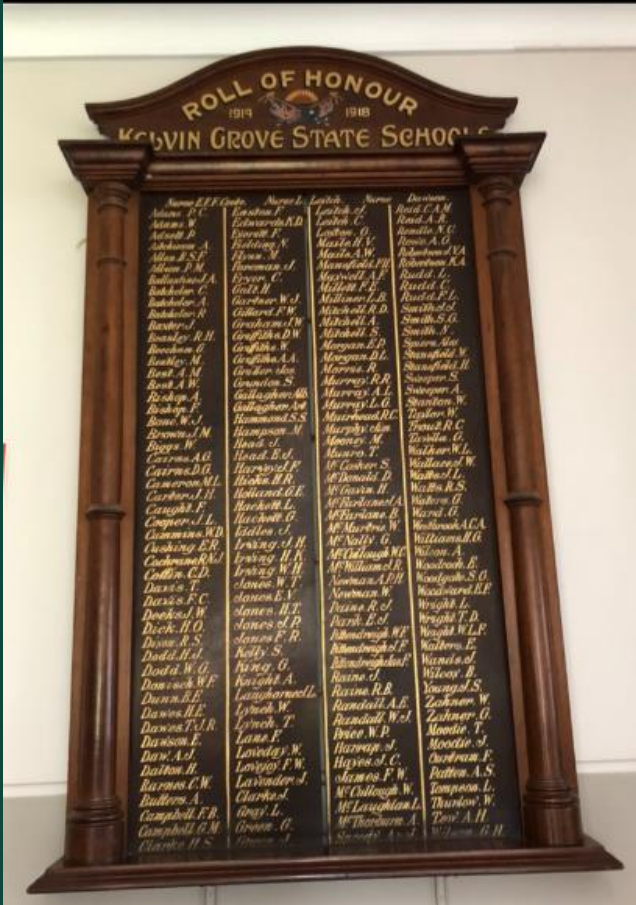 ROLL OF HONOUR
1914 1918
KELVIN GROVE STATE SCHOOLS
Nurse E.F.F. Cooke. Nurse L. Leitch. Nurse Dawson.
Adams P.C.
Adams W.
Adsett P.
Atchison A.
Allen E.S.F.
Allom P.M.
Ballantine J.A.
Batchelor C.
Batchelor A.
Batchelor R
Baxter J.
Beasley R.H.
Beechen G
Bentley M.
Best A.M
Best A.W.
Bishop A.
Bishop F.
Bone W.J.
Brown J.M.
Biggs W.
Cairns A.G.
Cairns D.G.
Cameron M.L.
Carter J.H.
Caught F.
Cooper J.L.
Cummins W.D.
Cushing E.R.
Cochrane R.N.J.
Collin C.D.
Davis T.
Davis F.C.
Deeks J.W.
Dick H.O.
Dixon R.S.
Dodd H.J.
Dodd W.G.
Donisch W.F.
Dunn B.E.
Dawes H.E.
Dawes T.J.R.
Dawson E.
Daw A.J.
Daiton H.
Barnes C.W.
Butters A.
Campbell F.B.
Campbell G.M.
Clarke H.S.
Easton F.
Edwards K.D.
Everitt F.
Fielding N.
Flynn M.
Foreman J.
Fryer C.
Gartner W.J.
Gillard F.W.
Graham J.W.
Griffiths D.W.
Griffiths W.
Griffiths A.A.
Grundon S.
Gallagher
Gallagher
Hammond S.S.
Hampson M.
Head J.
Head E.J.
Harvey J.F.
Hicks H.R.
Holland G.E.
Hackett L.
Hackett G.
Iddles C.
Irving J.H
Irving H.K
Irving W.H
Jones W.T
Jones E.V.
Jones H.T.
Jones J.P.
Jones F.R.
Kelly S.
King G.
Knight A.
Laughorne J.L.
Lynch W.
Lynch T.
Lane F.
Loveday W.
Lovejoy F.W.
Lavender J.
Clarke J.
Gray L.
Green G.
Green J.
Leitch J.
Leitch C.
Loxton G.
Male H.V.
Male A.W.
Mansfield P.H.
Maxwell A.F.
Millett F.E.
Milliner L.B.
Mitchell R.D.
Mitchell A.
Mitchell S.
Morgan E.P.
Morgan D.L.
Morris R
Murray R.R.
Murray A.L.
Murray L.G.
Muirhead R.C.
Murphy
Mooney M.
Munro T.
McCosker S.
McDonald D.
McGavin H.
McFarlane J.A.
McFarlane B.
McMurtrie W.
McNally G.
McCullough W.C.
McWilliam J.R.
Newman A.P.H
Newman W.
Paine R.J.
Park E.J.
Pittendreigh W.F.
Pittendreigh J.F.
Pittendreigh
Raine J.
Raine R.B.
Randall A.E.
Randall W.J.
Price W.P.
Harrap J.
Hayes J.C.
James F.W.
McCullough W.
McLaughlan L.
McThorburn A.
Reid C.A.M.
Reid A.R.
Rendle N.C.
Rowe A.G.
Robertson J.V.A.
Robertson K.A.
Rudd L.
Rudd C.
Rudd F.L.
Smith J.J.
Smith S.G.
Smith N.
Squire Alex
Stansfield W.
Stansfield H.
Sweeper S.
Sweeper A.
Stanton W.
Tailer W.
Trout R.C
Tavella G.
Walker W.L.
Wallace J.W.
Watts J.L.
Watts R.S.
Waters G.
Ward G.
Westbrook A.C.A.
Williams H.G.
Wilson A.
Woodcock E.
Woodgate S.O.
Woodward E.F.
Wright L.
Wright T.D.
Wright W.L.F.
Walters E.
Wands J.
Wilcox B.
Young J.S.
Zahner W.
Zahner G.
Moodie T.
Moodie J.
Curdram F.
Patten A.S.
Tompson L.
Thurlow W.
Tow A.H
Wilson G.H